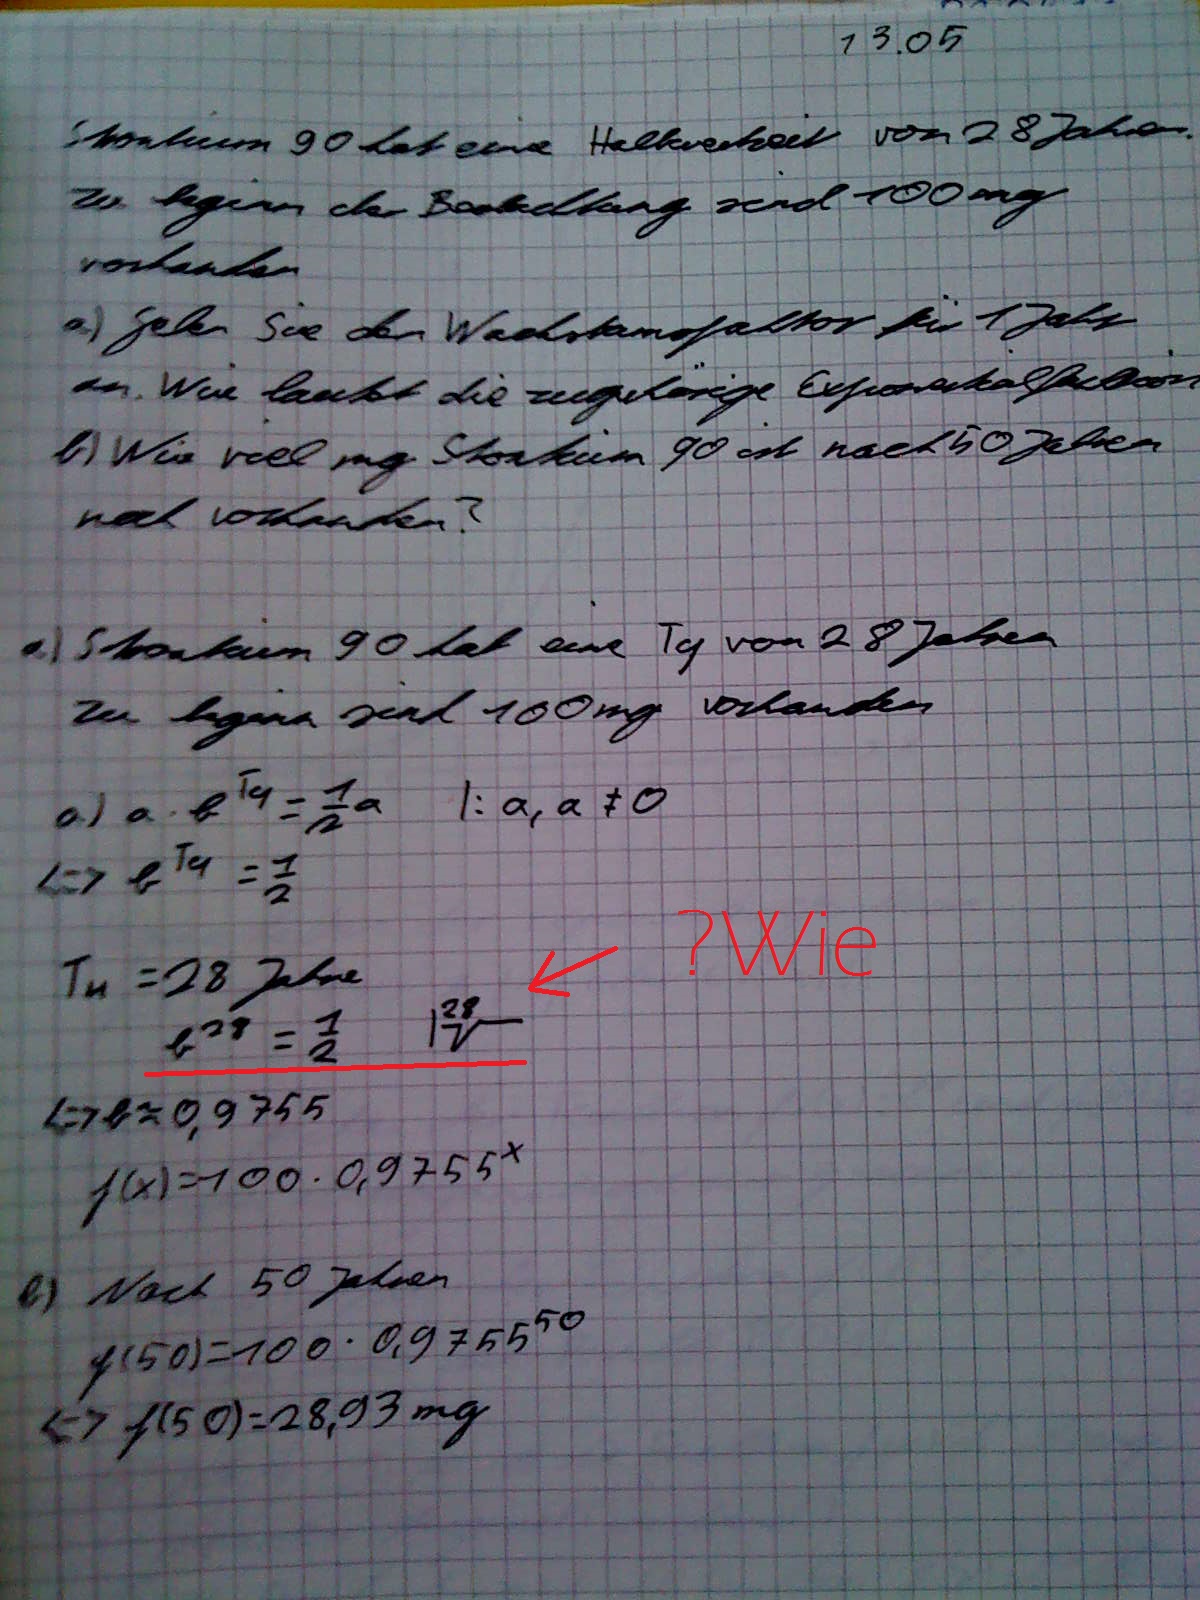 13.05
Strontium 90 hat eine Halbwertzeit von 28 Jahren.
zu beginn der Beobachtung sind 100mg
vorhanden
a.) geben Sie den Wachstumsfaktor für 1 Jahr
an. Wie lautet die zugehörige Exponentialfunktion
b) Wie viel mg Strontium 90 ist nach 50 Jahren
noch vorhanden?
a.) Strontium 90 hat eine T_H von 28 Jahren
zu beginn sind 100mg vorhanden
a.) a · b^(T_H) = 1/2 a |: a, a ≠ 0
<=> b^(T_H) = 1/2
?Wie
T_H = 28 Jahre
b^28 = 1/2 |28√
<=> b ≈ 0,9755
f(x) = 100 · 0,9755^x
b) Nach 50 Jahren
f(50) = 100 · 0,9755^50
<=> f(50) = 28,93 mg